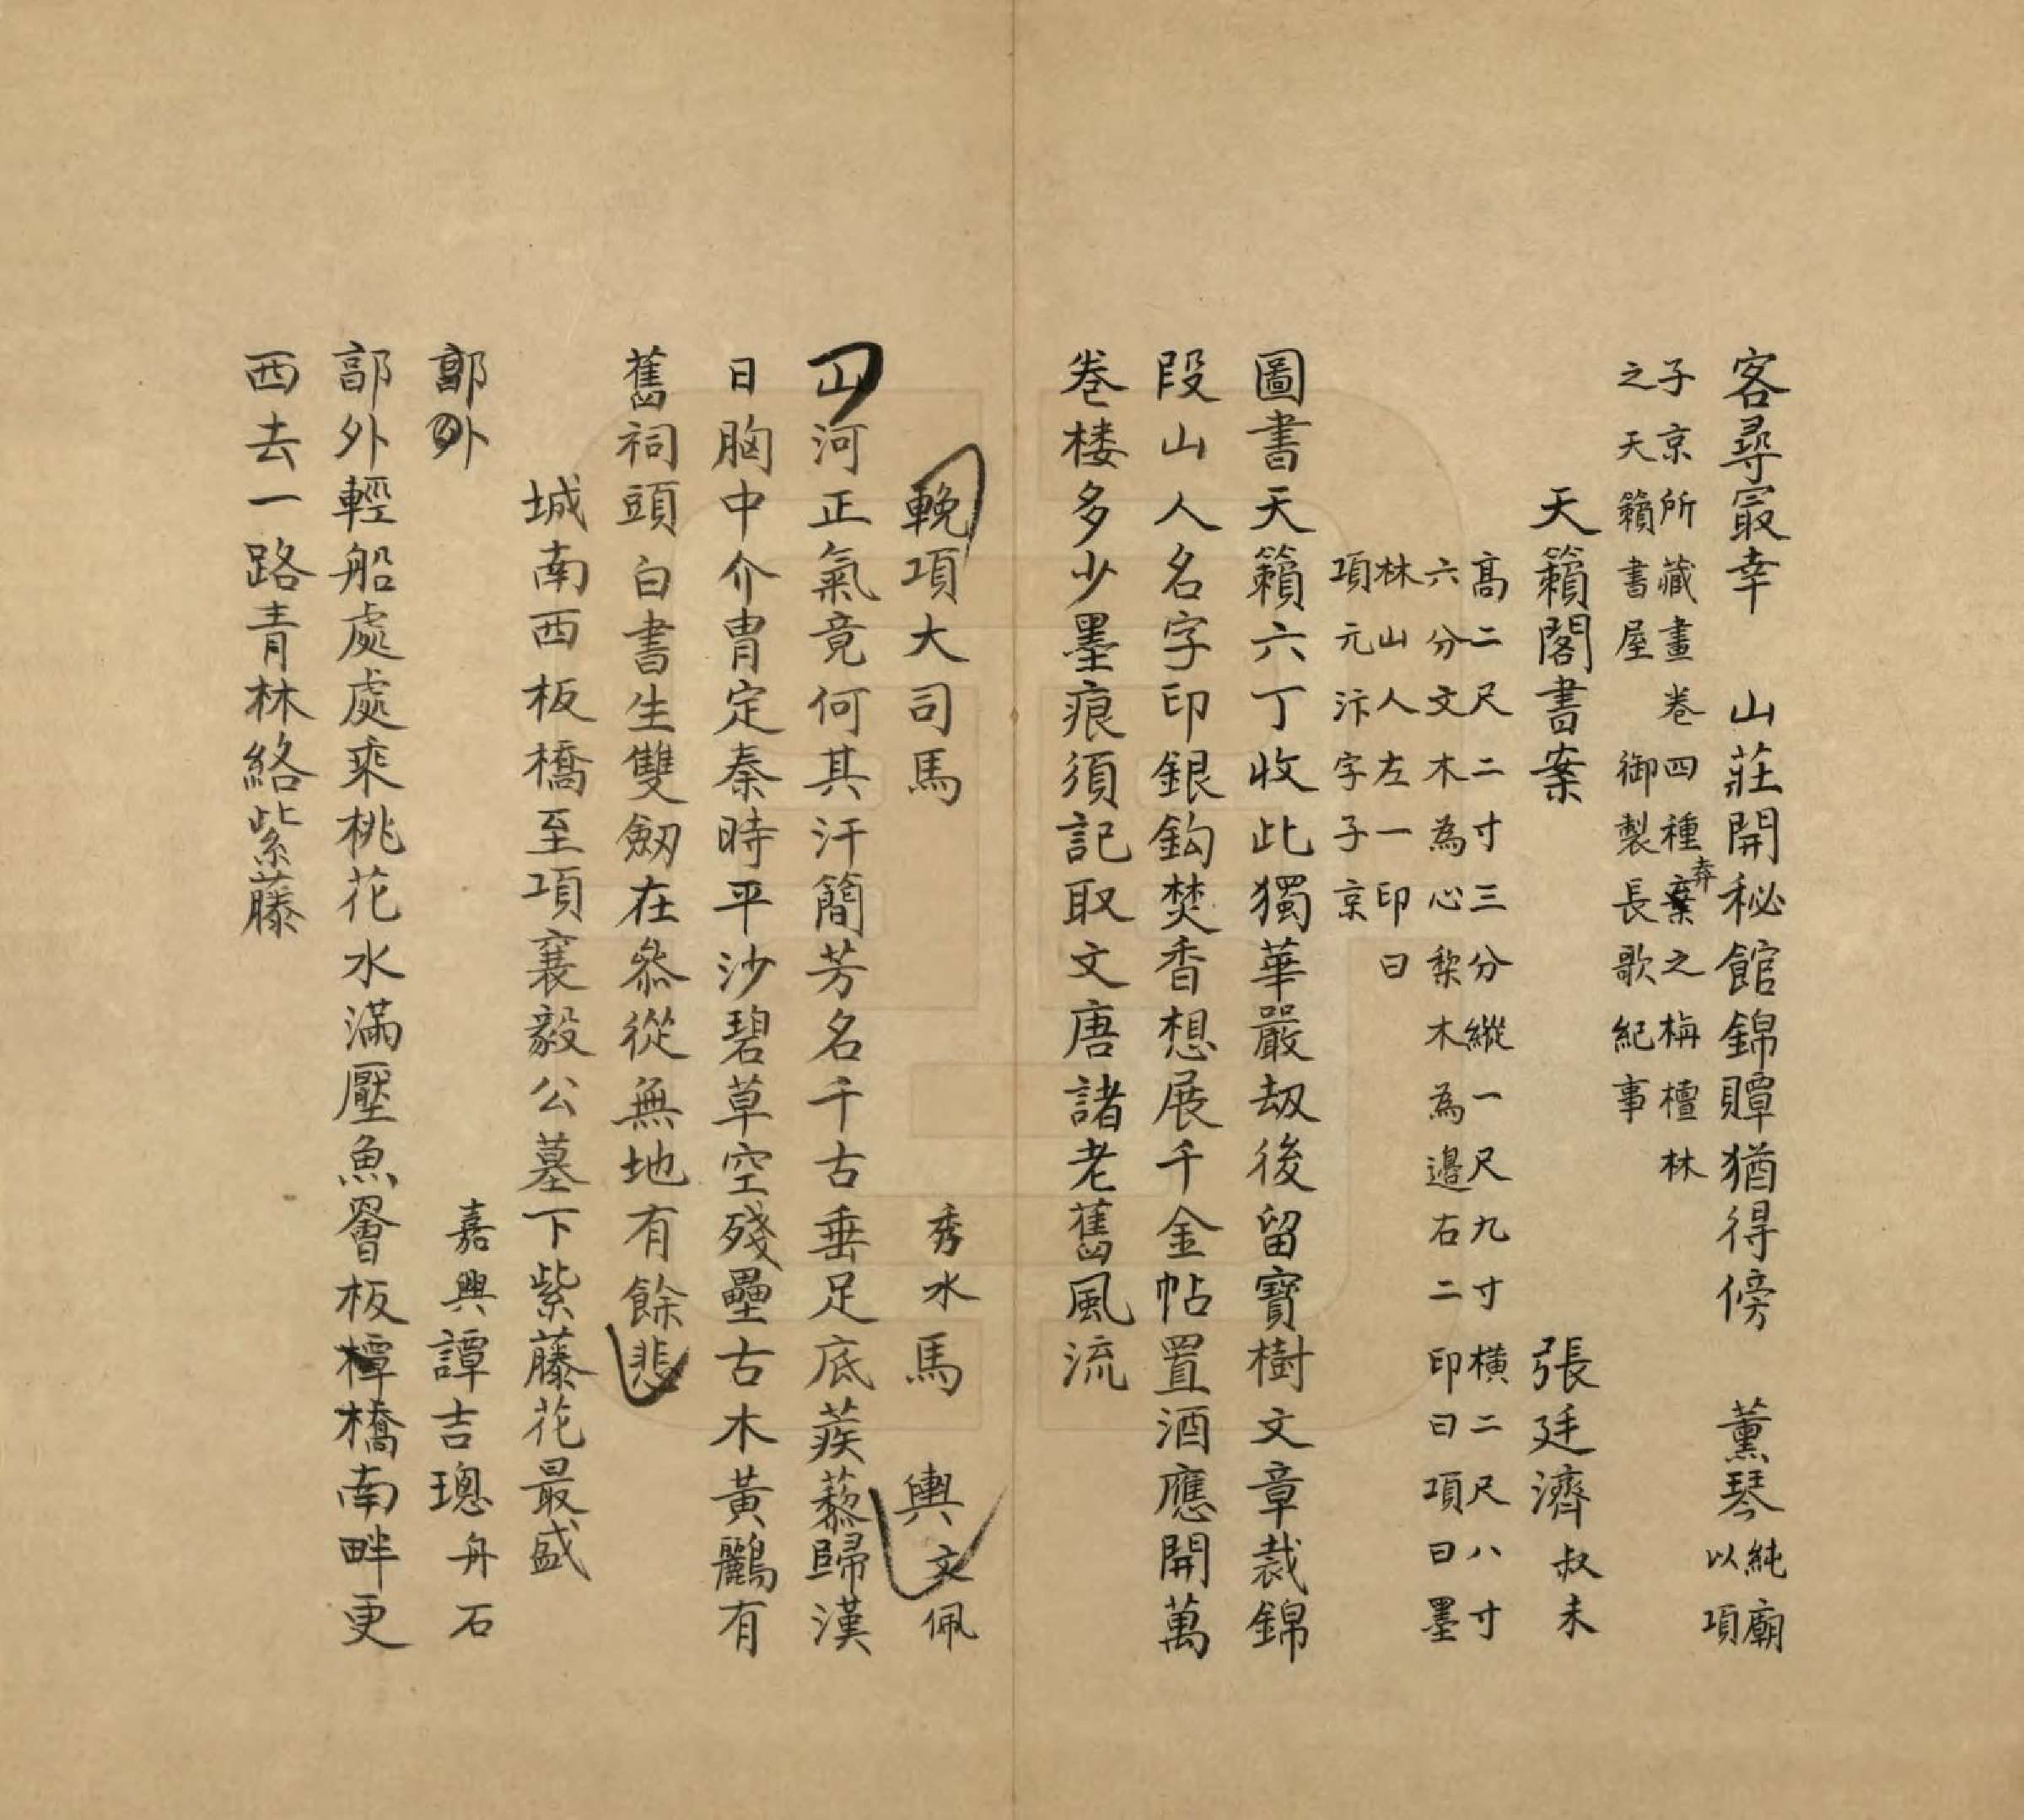 客尋冣幸　山莊開秘館錦贉猶得傍　薰琴純廟以項
子京所藏畫卷四種棄弆之栴檀林
之天籟書屋　御製長歌紀事
天籟閣書案　張廷濟叔未
高二尺二寸三分縱一尺九寸橫二尺八寸
六分文木為心棃木為邊右二印曰項曰墨
林山人左一印曰
項元汴字子京
圖書天籟六丁收此獨華嚴刼後留寶樹文章裁錦
段山人名字印銀鈎焚香想展千金帖置酒應開萬
卷楼多少墨痕須記取文唐諸老舊風流
輓項大司馬　秀水馬　輿文佩
山河正氣竟何其汗簡芳名千古垂足底蒺藜歸漢
日胸中介胄定秦時平沙碧草空殘壘古木黃鸝有
舊祠頭白書生雙劒在叅從無地有餘悲
城南西板橋至項襄毅公墓下紫藤花最盛
郭外　嘉興譚吉璁舟石
郭外輕船處處乘桃花水滿壓魚罾板橋南畔更
西去一路青林絡紫藤